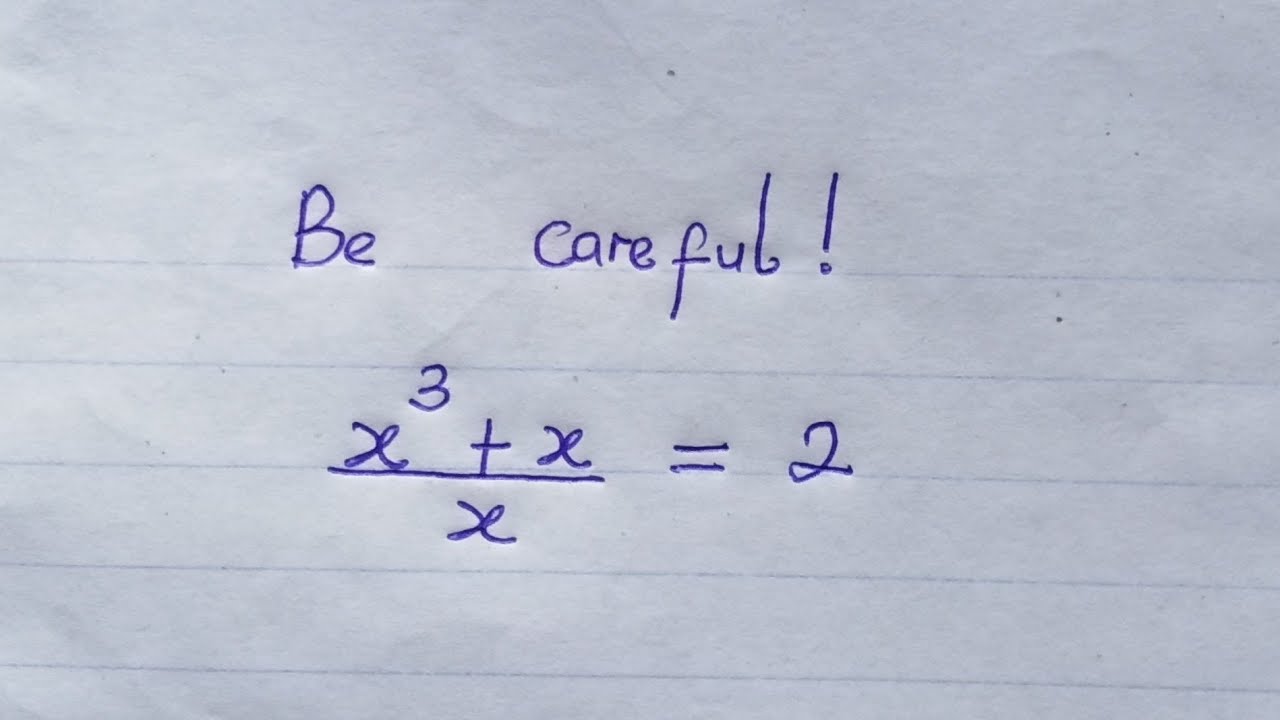 Be careful!
x³ + x
x
= 2